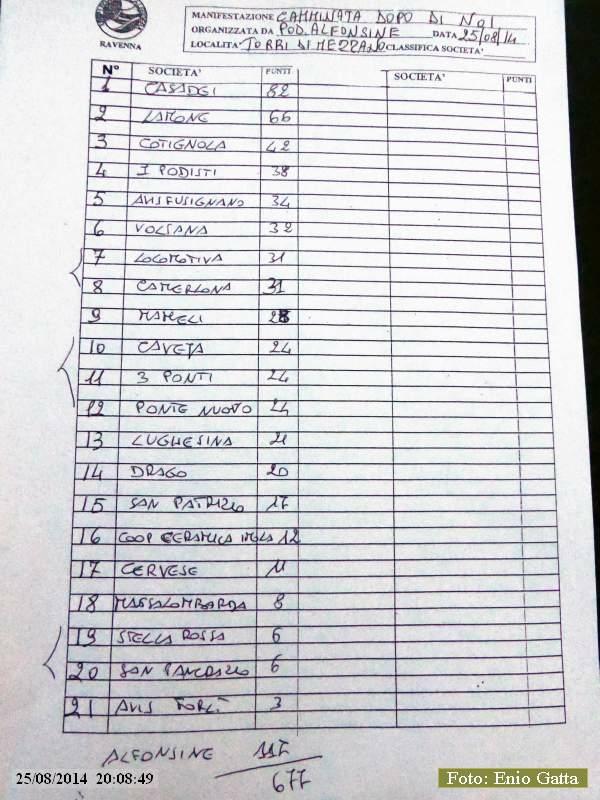 RAVENNA
MANIFESTAZIONE CAMMINATA DOPO DI NOI
ORGANIZZATA DA POD. ALFONSINE DATA 25/08/14
LOCALITA' TORRI DI MEZZANO CLASSIFICA SOCIETA'
N° SOCIETA' PUNTI SOCIETA' PUNTI
1 CASADEI 82
2 LAMONE 66
3 COTIGNOLA 42
4 I PODISTI 38
5 AVIS FUSIGNANO 34
6 VOLSANA 32
7 LOCOMOTIVA 31
8 CAMERLONA 31
9 MAMELI 28
10 CAVEJA 24
11 3 PONTI 24
12 PONTE NUOVO 24
13 LUGHESINA 21
14 DRAGO 20
15 SAN PATRIZIO 17
16 COOP CERAMICA IMOLA 12
17 CERVESE 11
18 MASSALOMBARDA 8
19 STELLA ROSSA 6
20 SAN PANCRAZIO 6
21 AVIS FORLÌ 3
ALFONSINE 117
677
25/08/2014 20:08:49
Foto: Enio Gatta